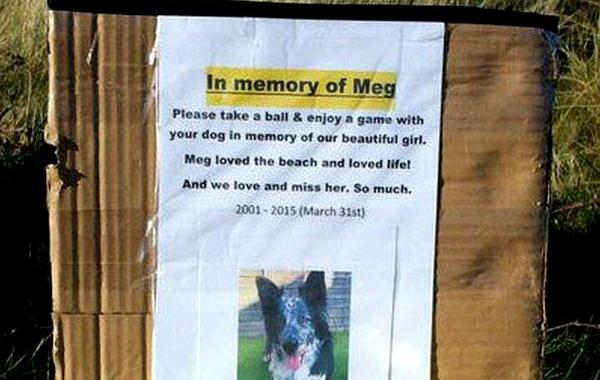 In memory of Meg
Please take a ball & enjoy a game with
your dog in memory of our beautiful girl.
Meg loved the beach and loved life!
And we love and miss her. So much.
2001 - 2015 (March 31st)